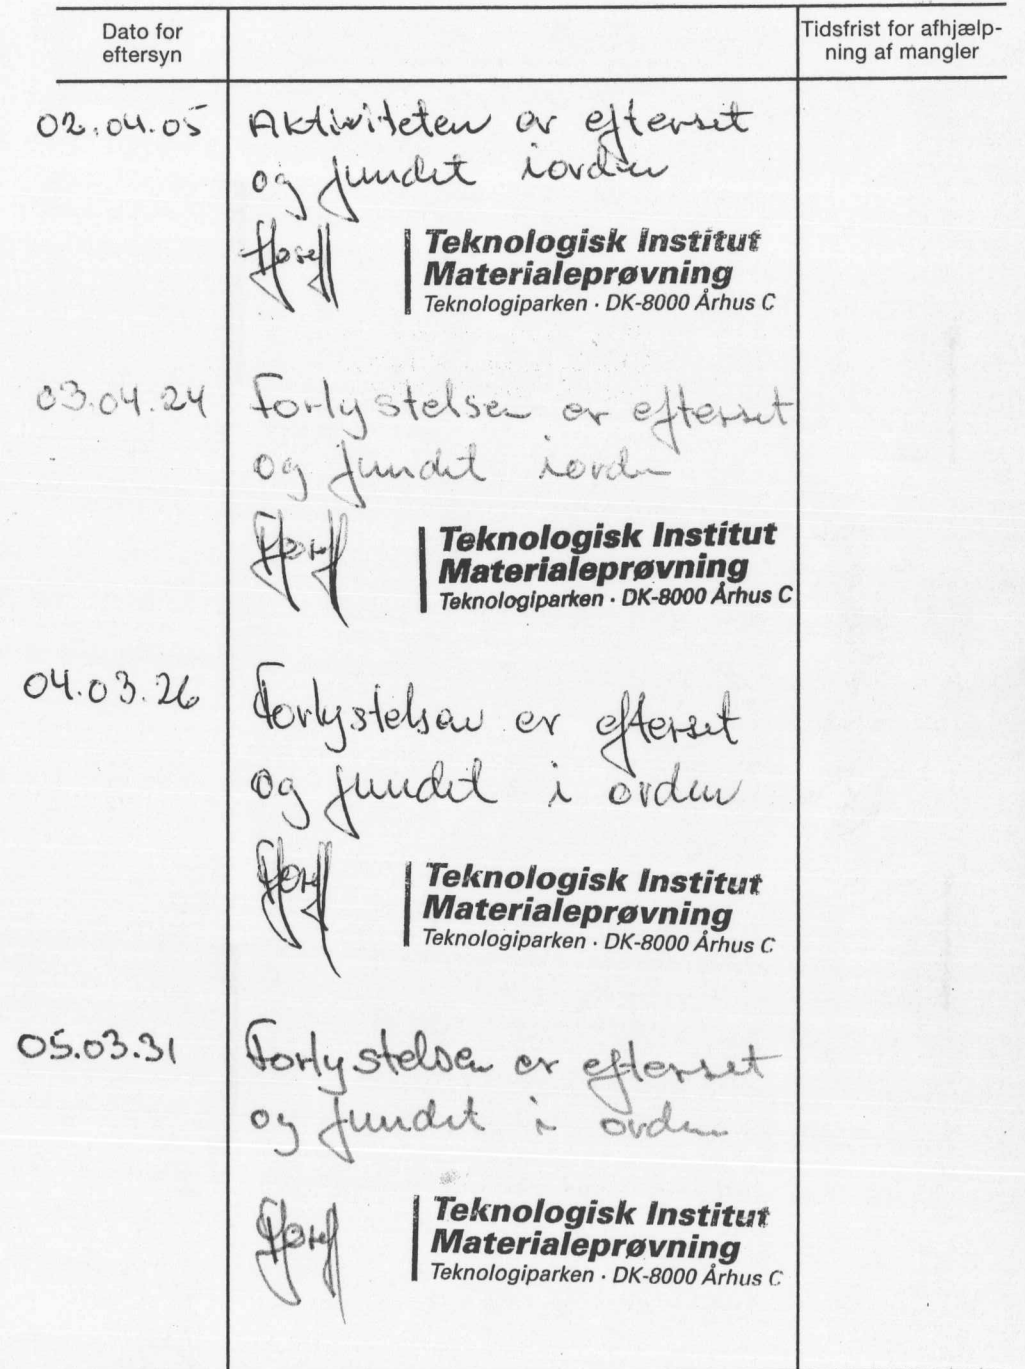 Dato for
eftersyn
Tidsfrist for afhjælp-
ning af mangler
02.04.05
Aktiviteten er efterset
og fundet iorden
Teknologisk Institut
Materialeprøvning
Teknologiparken · DK-8000 Århus C
03.04.24
Forlystelsen er efterset
og fundet iorden
Teknologisk Institut
Materialeprøvning
Teknologiparken · DK-8000 Århus C
04.03.26
Forlystelsen er efterset
og fundet i orden
Teknologisk Institut
Materialeprøvning
Teknologiparken · DK-8000 Århus C
05.03.31
Forlystelsen er efterset
og fundet i orden
Teknologisk Institut
Materialeprøvning
Teknologiparken · DK-8000 Århus C